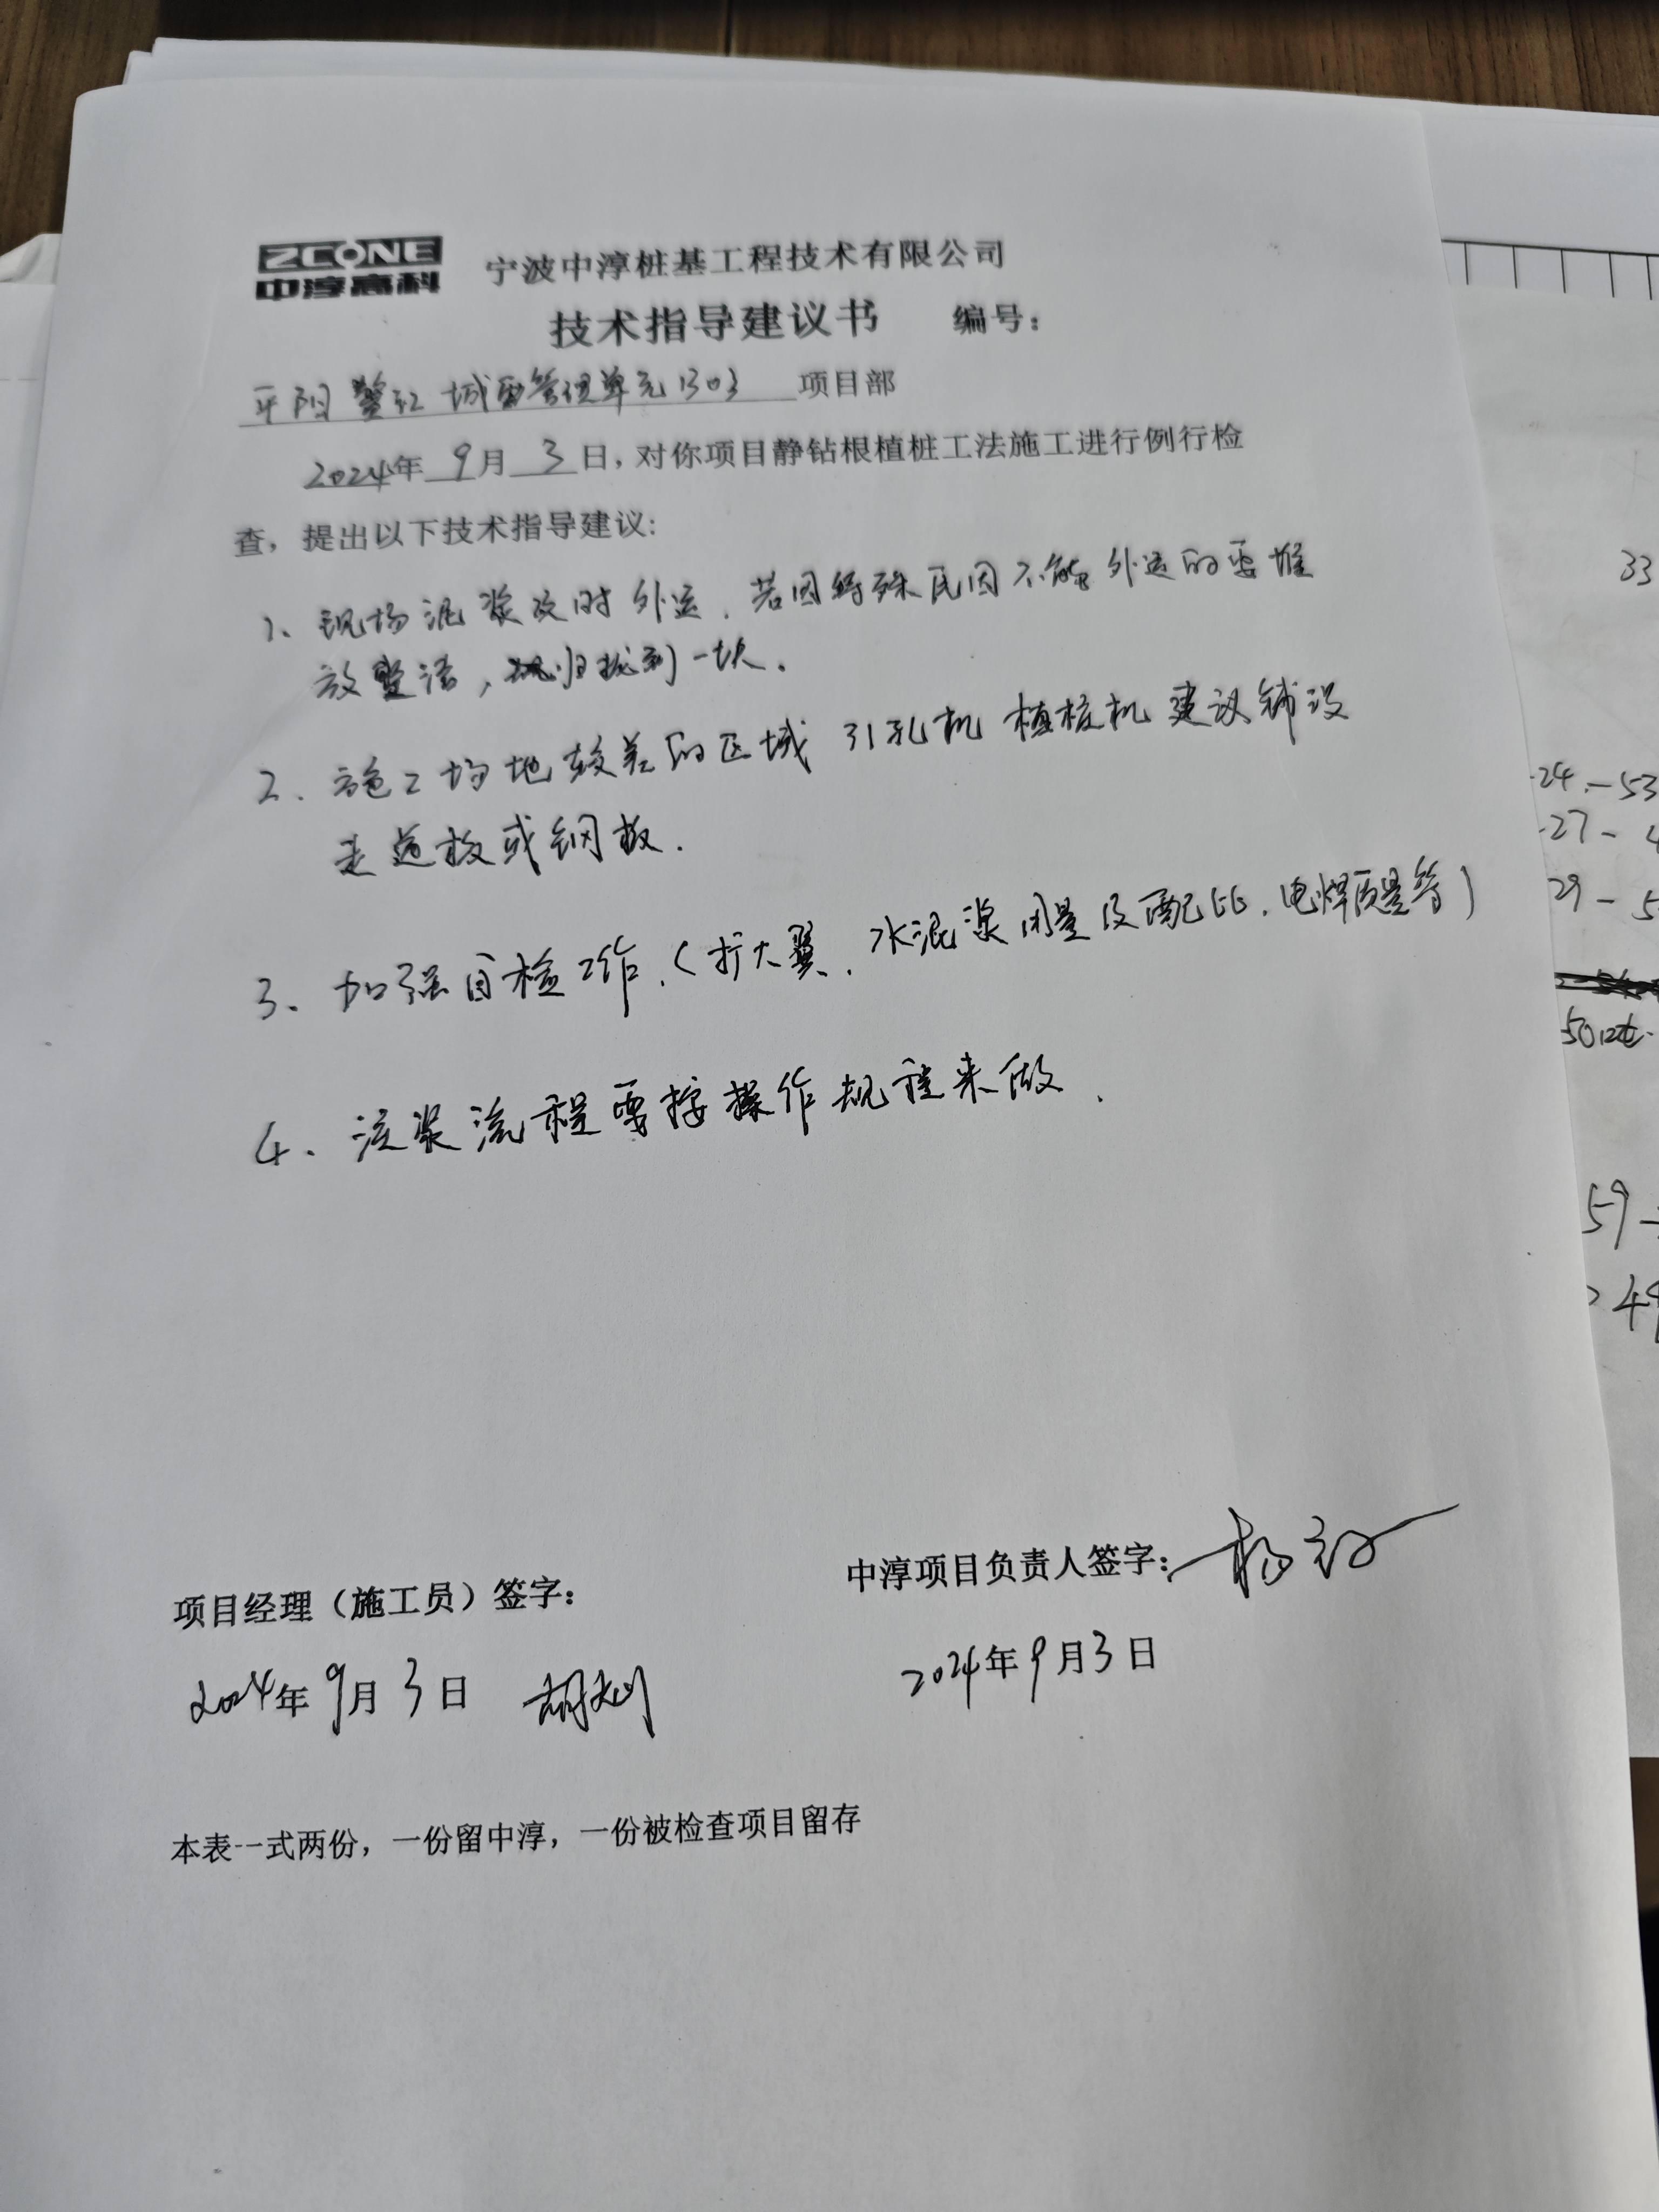 ZCONE
中淳高科
宁波中淳桩基工程技术有限公司
技术指导建议书 编号：
平阳鳌江城西管理单元1303 项目部
2024年 9月 3日，对你项目静钻根植桩工法施工进行例行检
查，提出以下技术指导建议：
1、现场泥浆及时外运，若因特殊原因不能外运的要堆
放整洁，归拢到一块。
2、施工场地较差的区域 引孔机 植桩机 建议铺设
走道板或钢板.
3、加强自检工作.（扩大翼、水泥浆用量及配比、电焊质量等）
4、注浆流程要按操作规程来做.
项目经理（施工员）签字：
中淳项目负责人签字：
2024年9月3日
2024年9月3日
本表一式两份，一份留中淳，一份被检查项目留存
33
-24.-53
-27-
29-5
59-